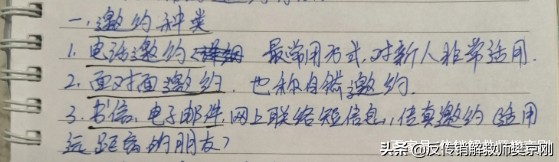 一、邀约种类
1. 电话邀约 最常用方式,对新人非常适用.
2. 面对面邀约,也称自然邀约.
3. 书信、电子邮件,网上联络短信息,传真邀约(适用
远距离的朋友)
头条@反传销解救师樊京刚